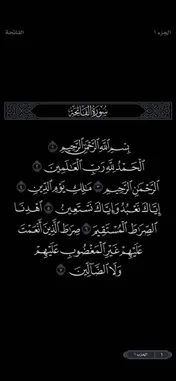 الجزء ١ الفاتحة
سُورَةُ الْفَاتِحَةِ
بِسْمِ اللَّهِ الرَّحْمَٰنِ الرَّحِيمِ ١
الْحَمْدُ لِلَّهِ رَبِّ الْعَالَمِينَ ٢
الرَّحْمَٰنِ الرَّحِيمِ ٣ مَالِكِ يَوْمِ الدِّينِ ٤
إِيَّاكَ نَعْبُدُ وَإِيَّاكَ نَسْتَعِينُ ٥ اهْدِنَا
الصِّرَاطَ الْمُسْتَقِيمَ ٦ صِرَاطَ الَّذِينَ أَنْعَمْتَ
عَلَيْهِمْ غَيْرِ الْمَغْضُوبِ عَلَيْهِمْ
وَلَا الضَّالِّينَ ٧
١ الحزب ١